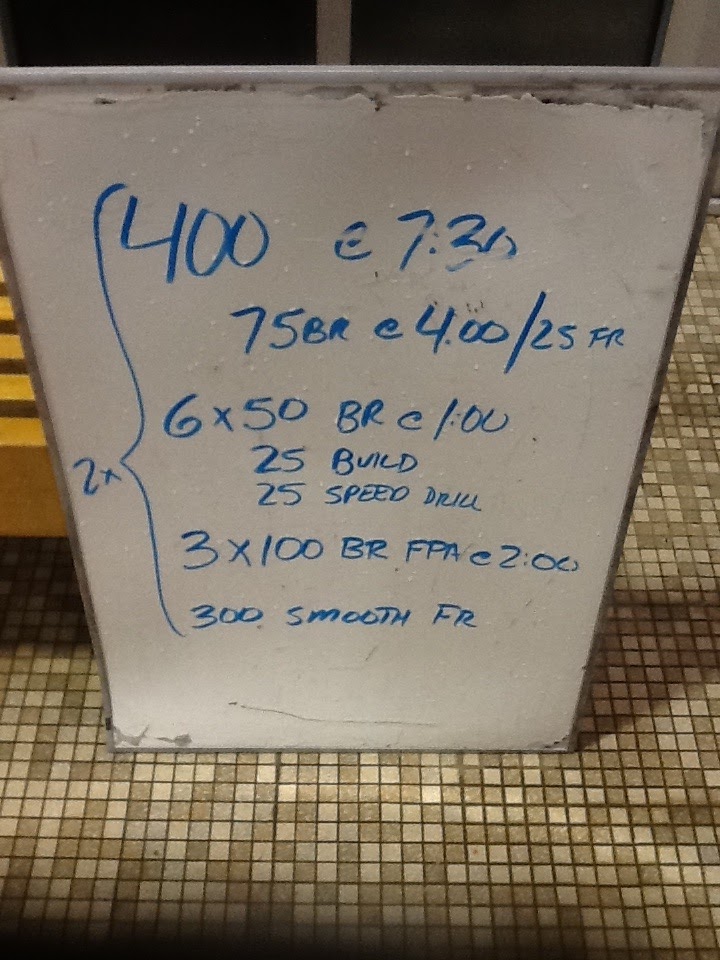 400 @ 7:30
75 BR @ 4:00/25 FR
6 x 50 BR @ 1:00
25 BUILD
2x
25 SPEED DRILL
3 x 100 BR FPA @ 2:00
300 SMOOTH FR